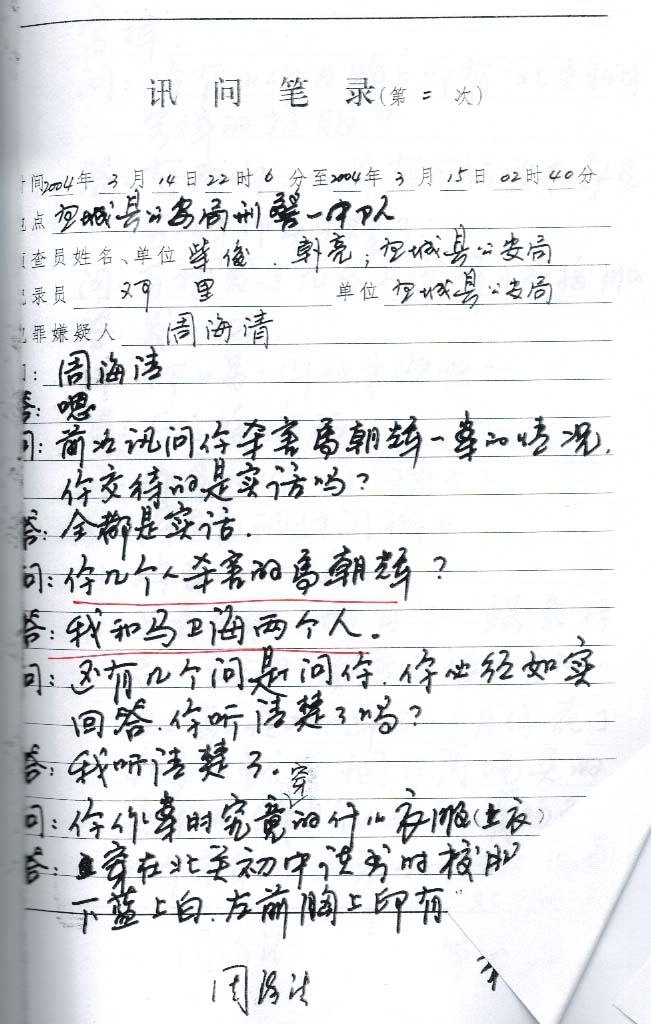 讯问笔录(第二次)
间2004年3月14日22时6分至2004年3月15日02时40分
点 县公安局刑警一中队
查员姓名、单位 柴俊、朝亮;县公安局
录员 里 单位 县公安局
罪嫌疑人 周海清
问:周海清
答:嗯
问:前次讯问你杀害马朝辉一案的情况,
你交待的是实话吗?
答:全都是实话.
问:你几个人杀害的马朝辉?
答:我和马卫海两个人。
问:还有几个问题问你.你必经如实
回答.你听清楚了吗?
答:我听清楚了.
问:你作案时究竟穿的什么衣服(上衣)
答:穿在北关初中读书时校服
下蓝上白.左前胸上印有
周海清